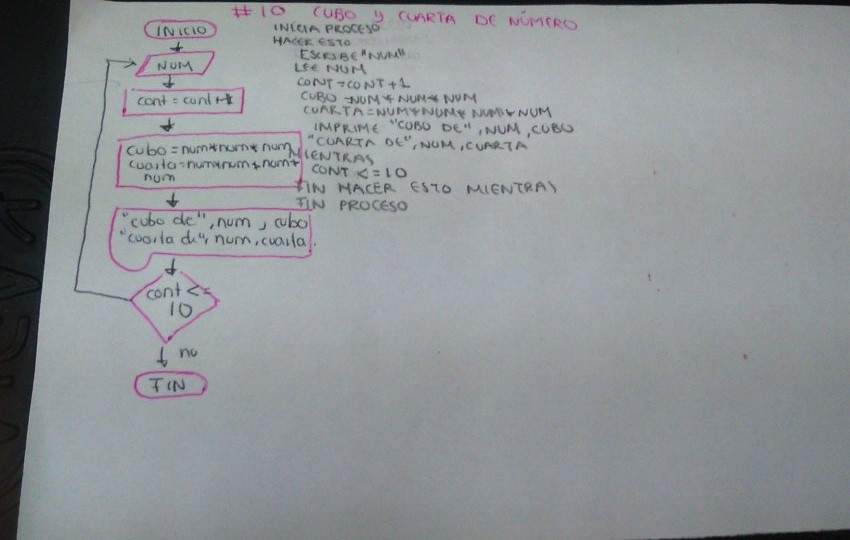 #10 CUBO Y CUARTA DE NÚMERO
INICIO
NUM
cont = cont+1
cubo = num*num*num
cuarta=num*num*num*
num
"cubo de", num, cubo
"cuarta de", num, cuarta.
cont <=
10
no
FIN
INICIA PROCESO
HACER ESTO
ESCRIBE "NUM"
LEE NUM
CONT=CONT+1
CUBO =NUM*NUM*NUM
CUARTA=NUM*NUM*NUM*NUM
IMPRIME "CUBO DE", NUM, CUBO
"CUARTA DE", NUM, CUARTA
MIENTRAS
CONT <=10
FIN HACER ESTO MIENTRAS
FIN PROCESO